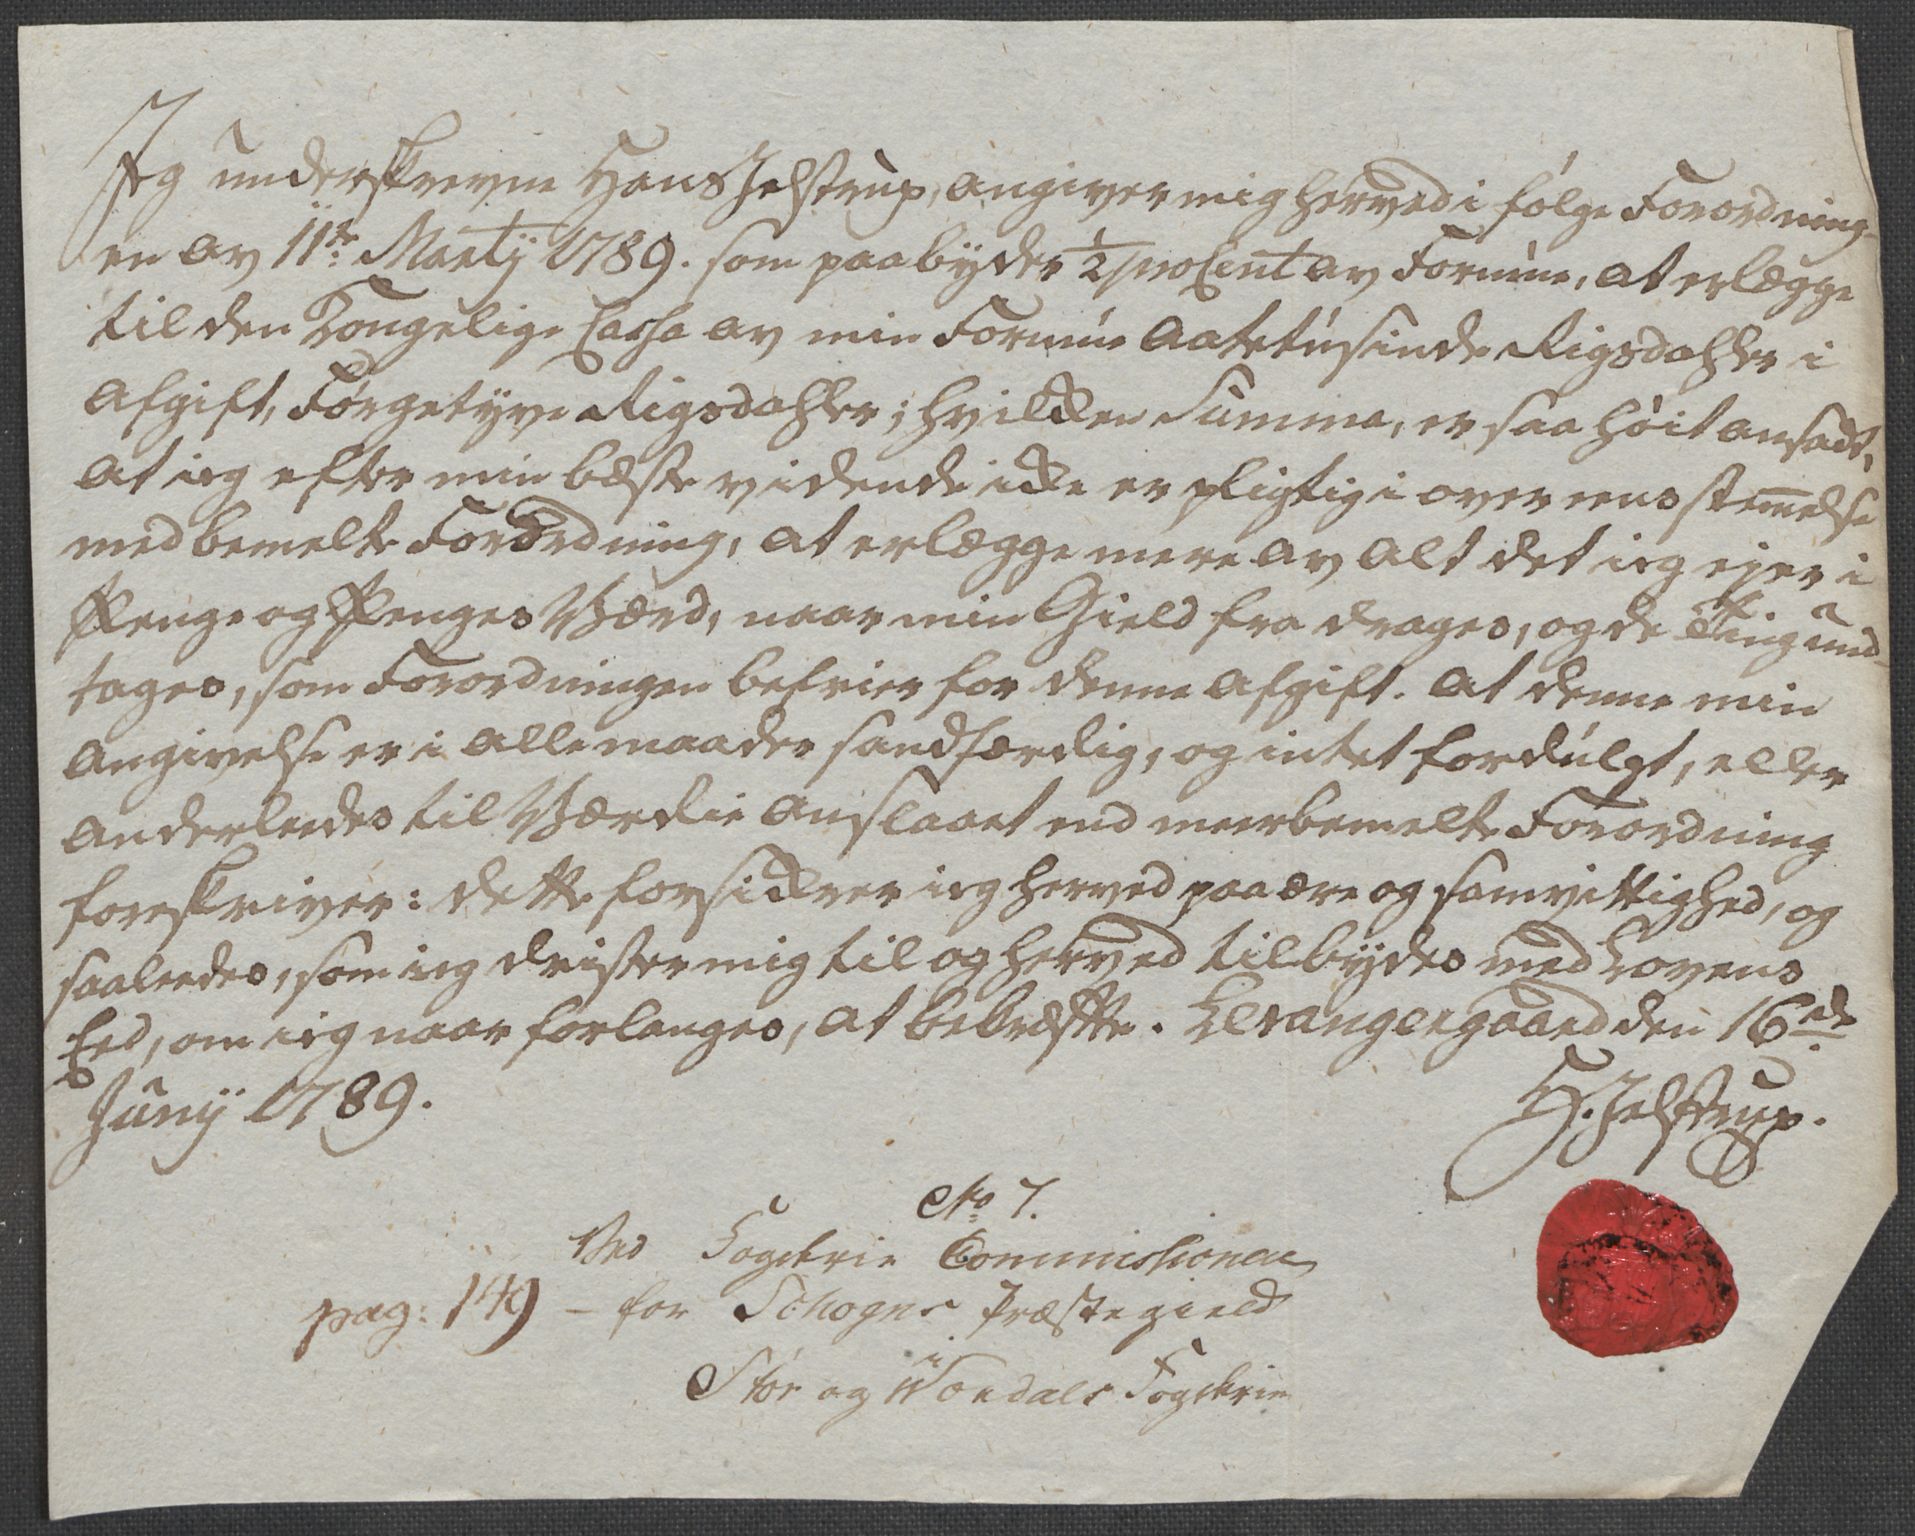 Jeg underskrevne Hans Jelstrup, angiver mig herved i følge Forordning-
en av 11te Martij 1789. som paabyder 1/2 pro Cent av Formue, at erlægge
til den Kongelige Cassa av min Formue Aatetusinde Rigsdahler i
Afgift, Førgetyve Rigsdahler; hvilken Summa, er saa høit ansadt,
at ieg efter min beste vidende ikke er pligtig i overeensstemelse
med bemelte Forordning, at erlægge mere av alt det ieg ejer i
Penge og Penges Værd, naar min Gield fra drages, og de Ting und-
tages, som Forordningen befrier for denne Afgift. At denne min
Angivelse er i alle maader sandfærdig, og intet fordulgt, eller
anderledes til Værdie anslaaet end meerbemelte Forordning
foreskriver: dette forsikrer ieg herved paa ære og samvittighed, og
saaledes, som ieg drister mig til og herved tilbydes med Lovens
Eed, om ieg naar forlanges, at bekræfte. Levangergaard den 16de
Junij 1789.
H. Jelstrup.
No 7.
Ved Fogderie Commissionen
pag: 149 – for Schogns Præstegield
i
Stør og Værdals Fogderie